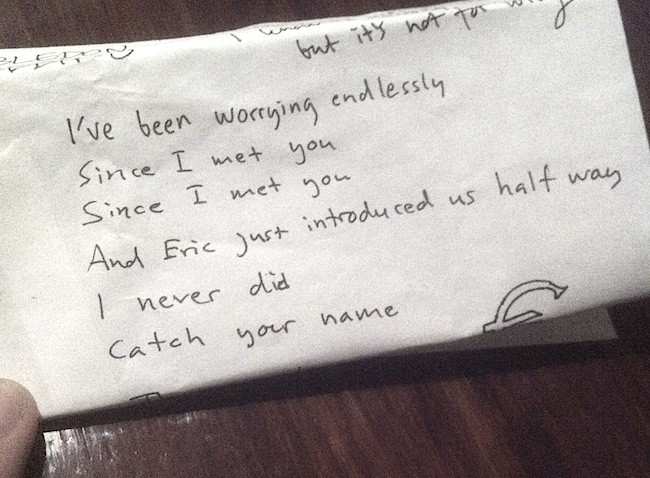 but it's not for
I've been worrying endlessly
Since I met you
Since I met you
And Eric just introduced us half way
I never did
Catch your name